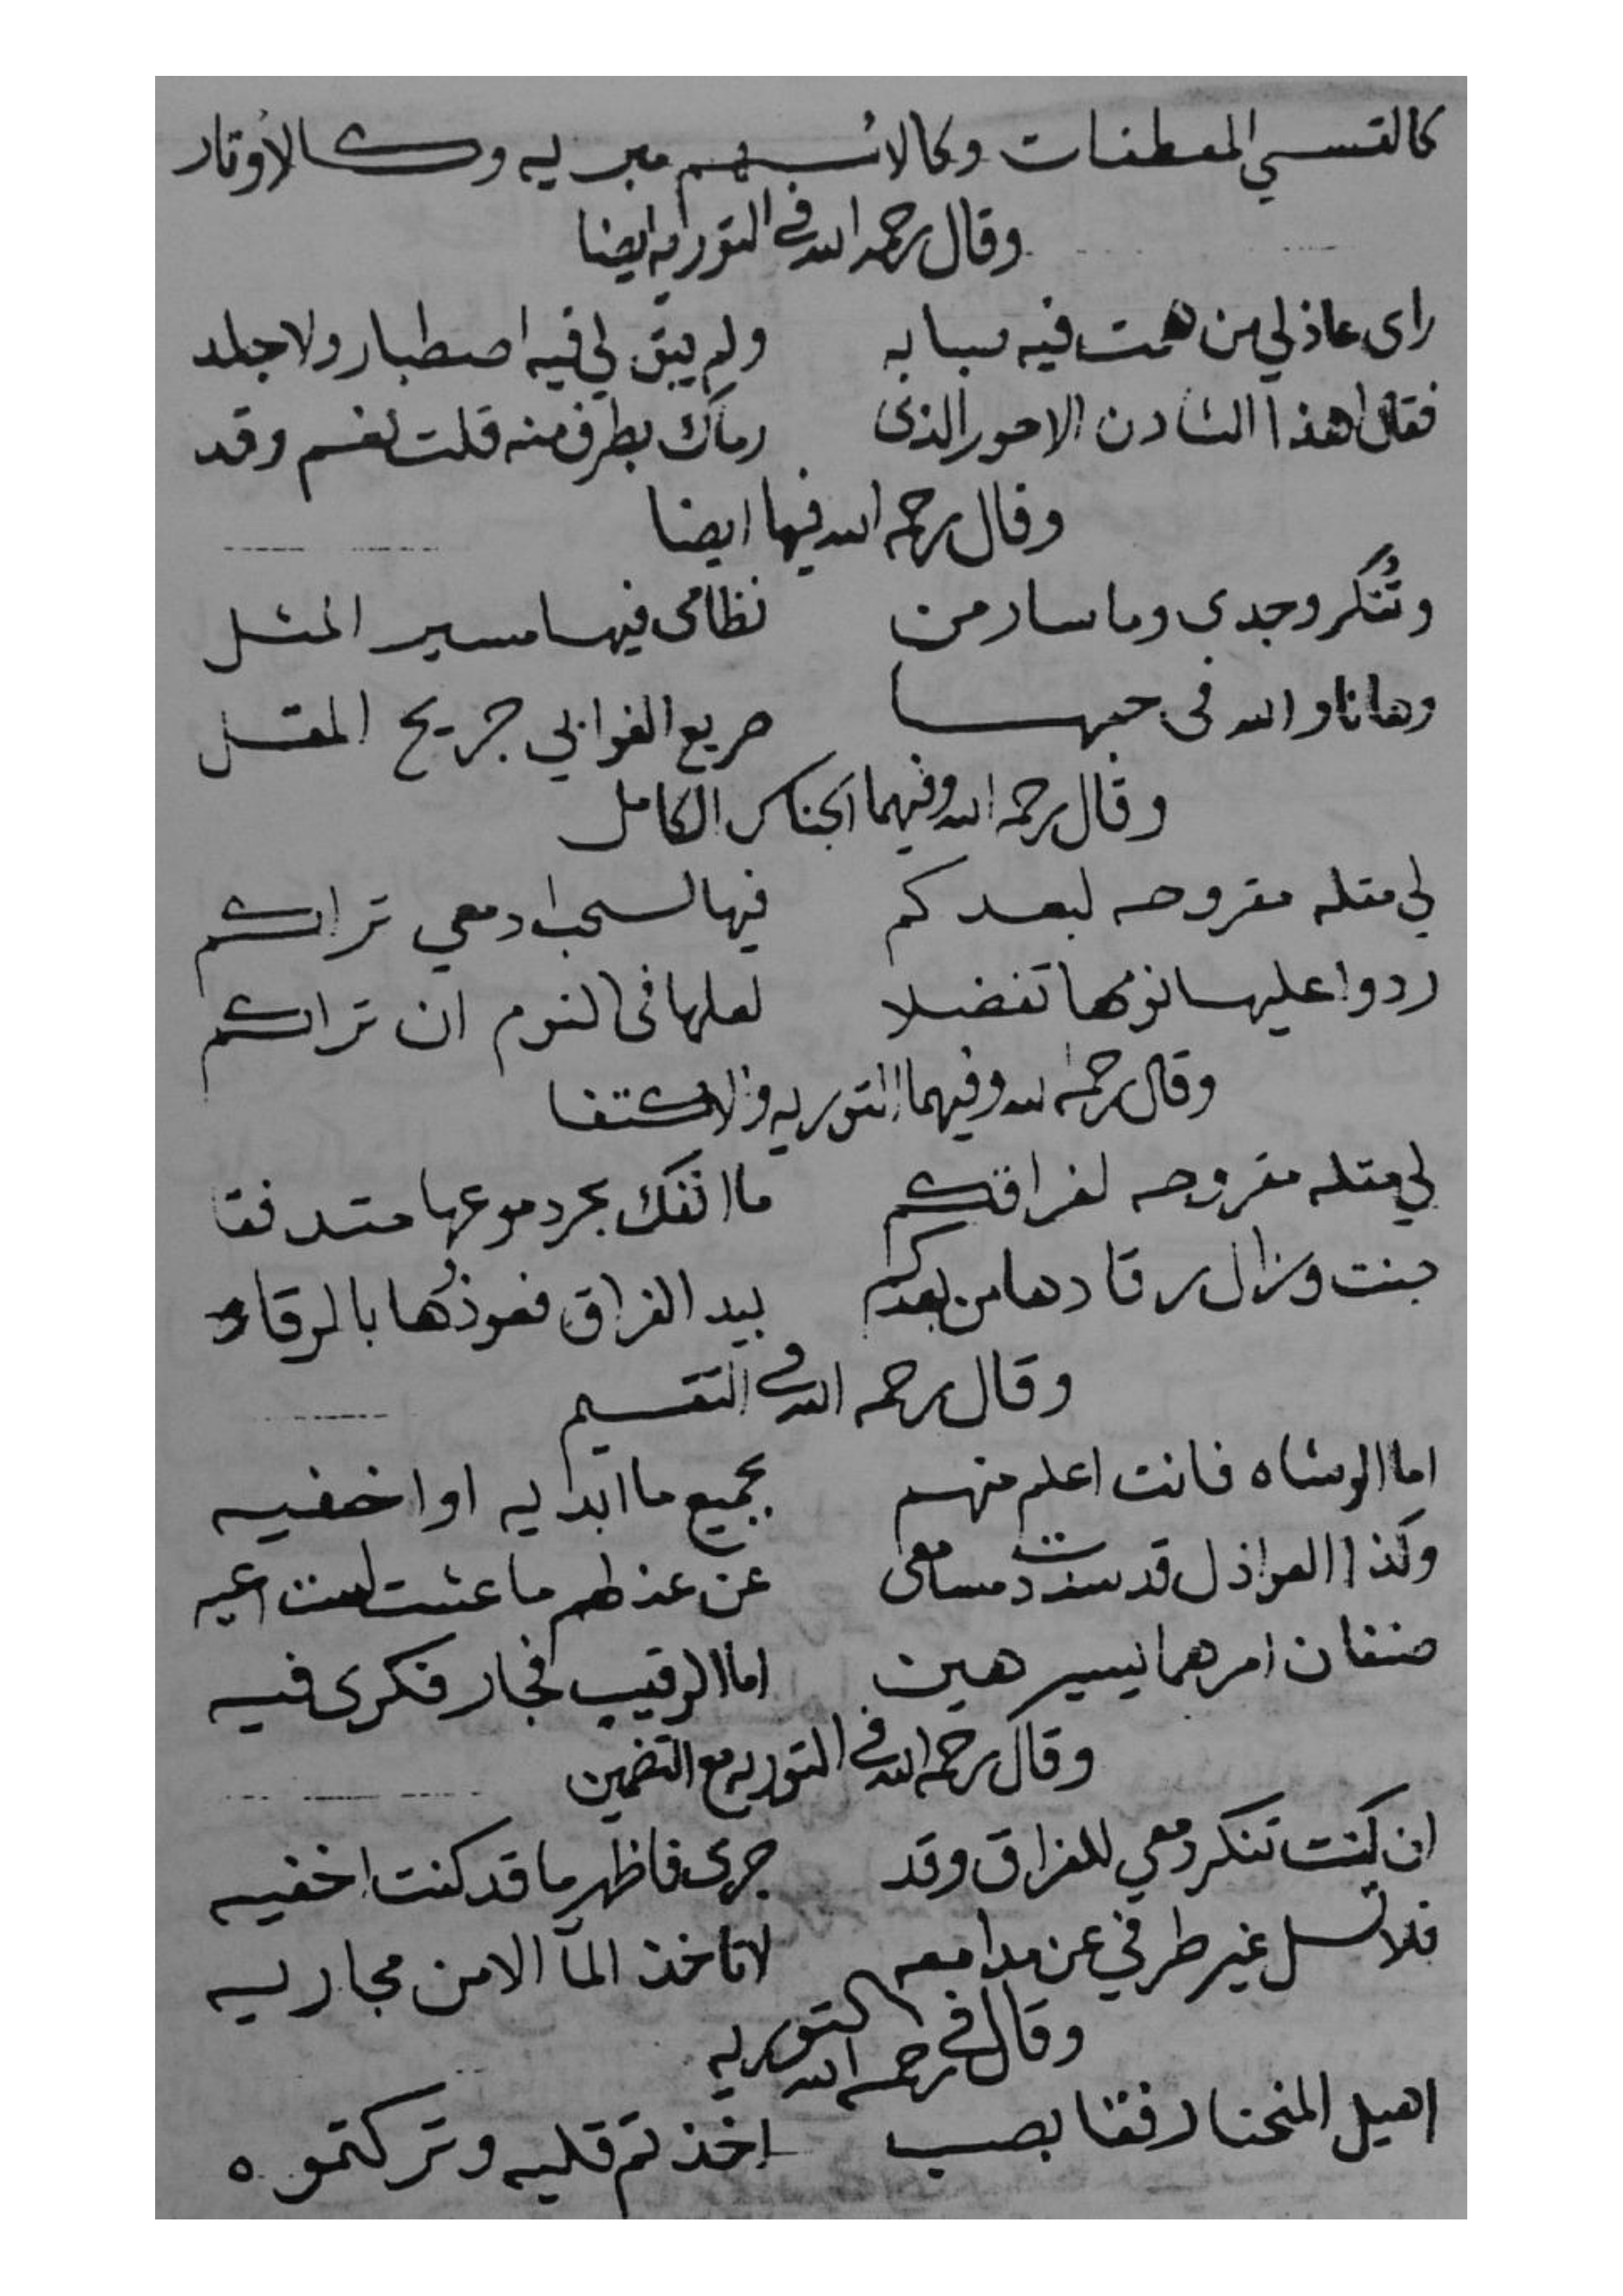 كالقسي المعطفات وكالاسهم مبريه وكالاوتار
وقال رحمه الله في التوريه ايضا
راى عاذلي من همت فيه صبابه ولم يبق لي فيه اصطبار ولا جلد
فقال اهذا الشادن الاحور الذى رماك بطرف منه قلت نعم وقد
وقال رحمه الله فيها ايضا
وتُنكر وجدي وما سار من نظامى فيها مسير المثل
وهانا والله فى حبها صريع الغواني جريح المقل
وقال رحمه الله وفيهما الجناس الكامل
لي مقله مقروحه لبعدكم فيها لسحب ادمعي تراكم
ردوا عليها نومها تفضلا لعلها فى النوم ان تراكم
وقال رحمه الله وفيهما التوريه والاكتفا
لي مقله مقروحه لفراقكم ما انفك بحر دموعها متدفقا
جنت وزال رقادها من بعدكم بيد الفراق فعوذُها بالرقاد
وقال رحمه الله في التقسيم
اما الوشاه فانت اعلم منهم بجميع ما ابديه او اخفيه
وكذا العواذل قد سددت مسامعى عن عذلهم ما عشت لست اعيه
صنفان امرهما يسير هين اما الرقيب فحار فكرى فيه
وقال رحمه الله في التوريه مع التضمين
ان كنت تنكر دمعي للفراق وقد جرى فاظهر ما قد كنت اخفيه
فلا تسل غير طرفي عن مدامعه لا تاخذ المآ الا من مجاريه
وقال رحمه الله في التوريه
اهيل المنحنا رفقا بصب اخذتم قلبه وتركتموه